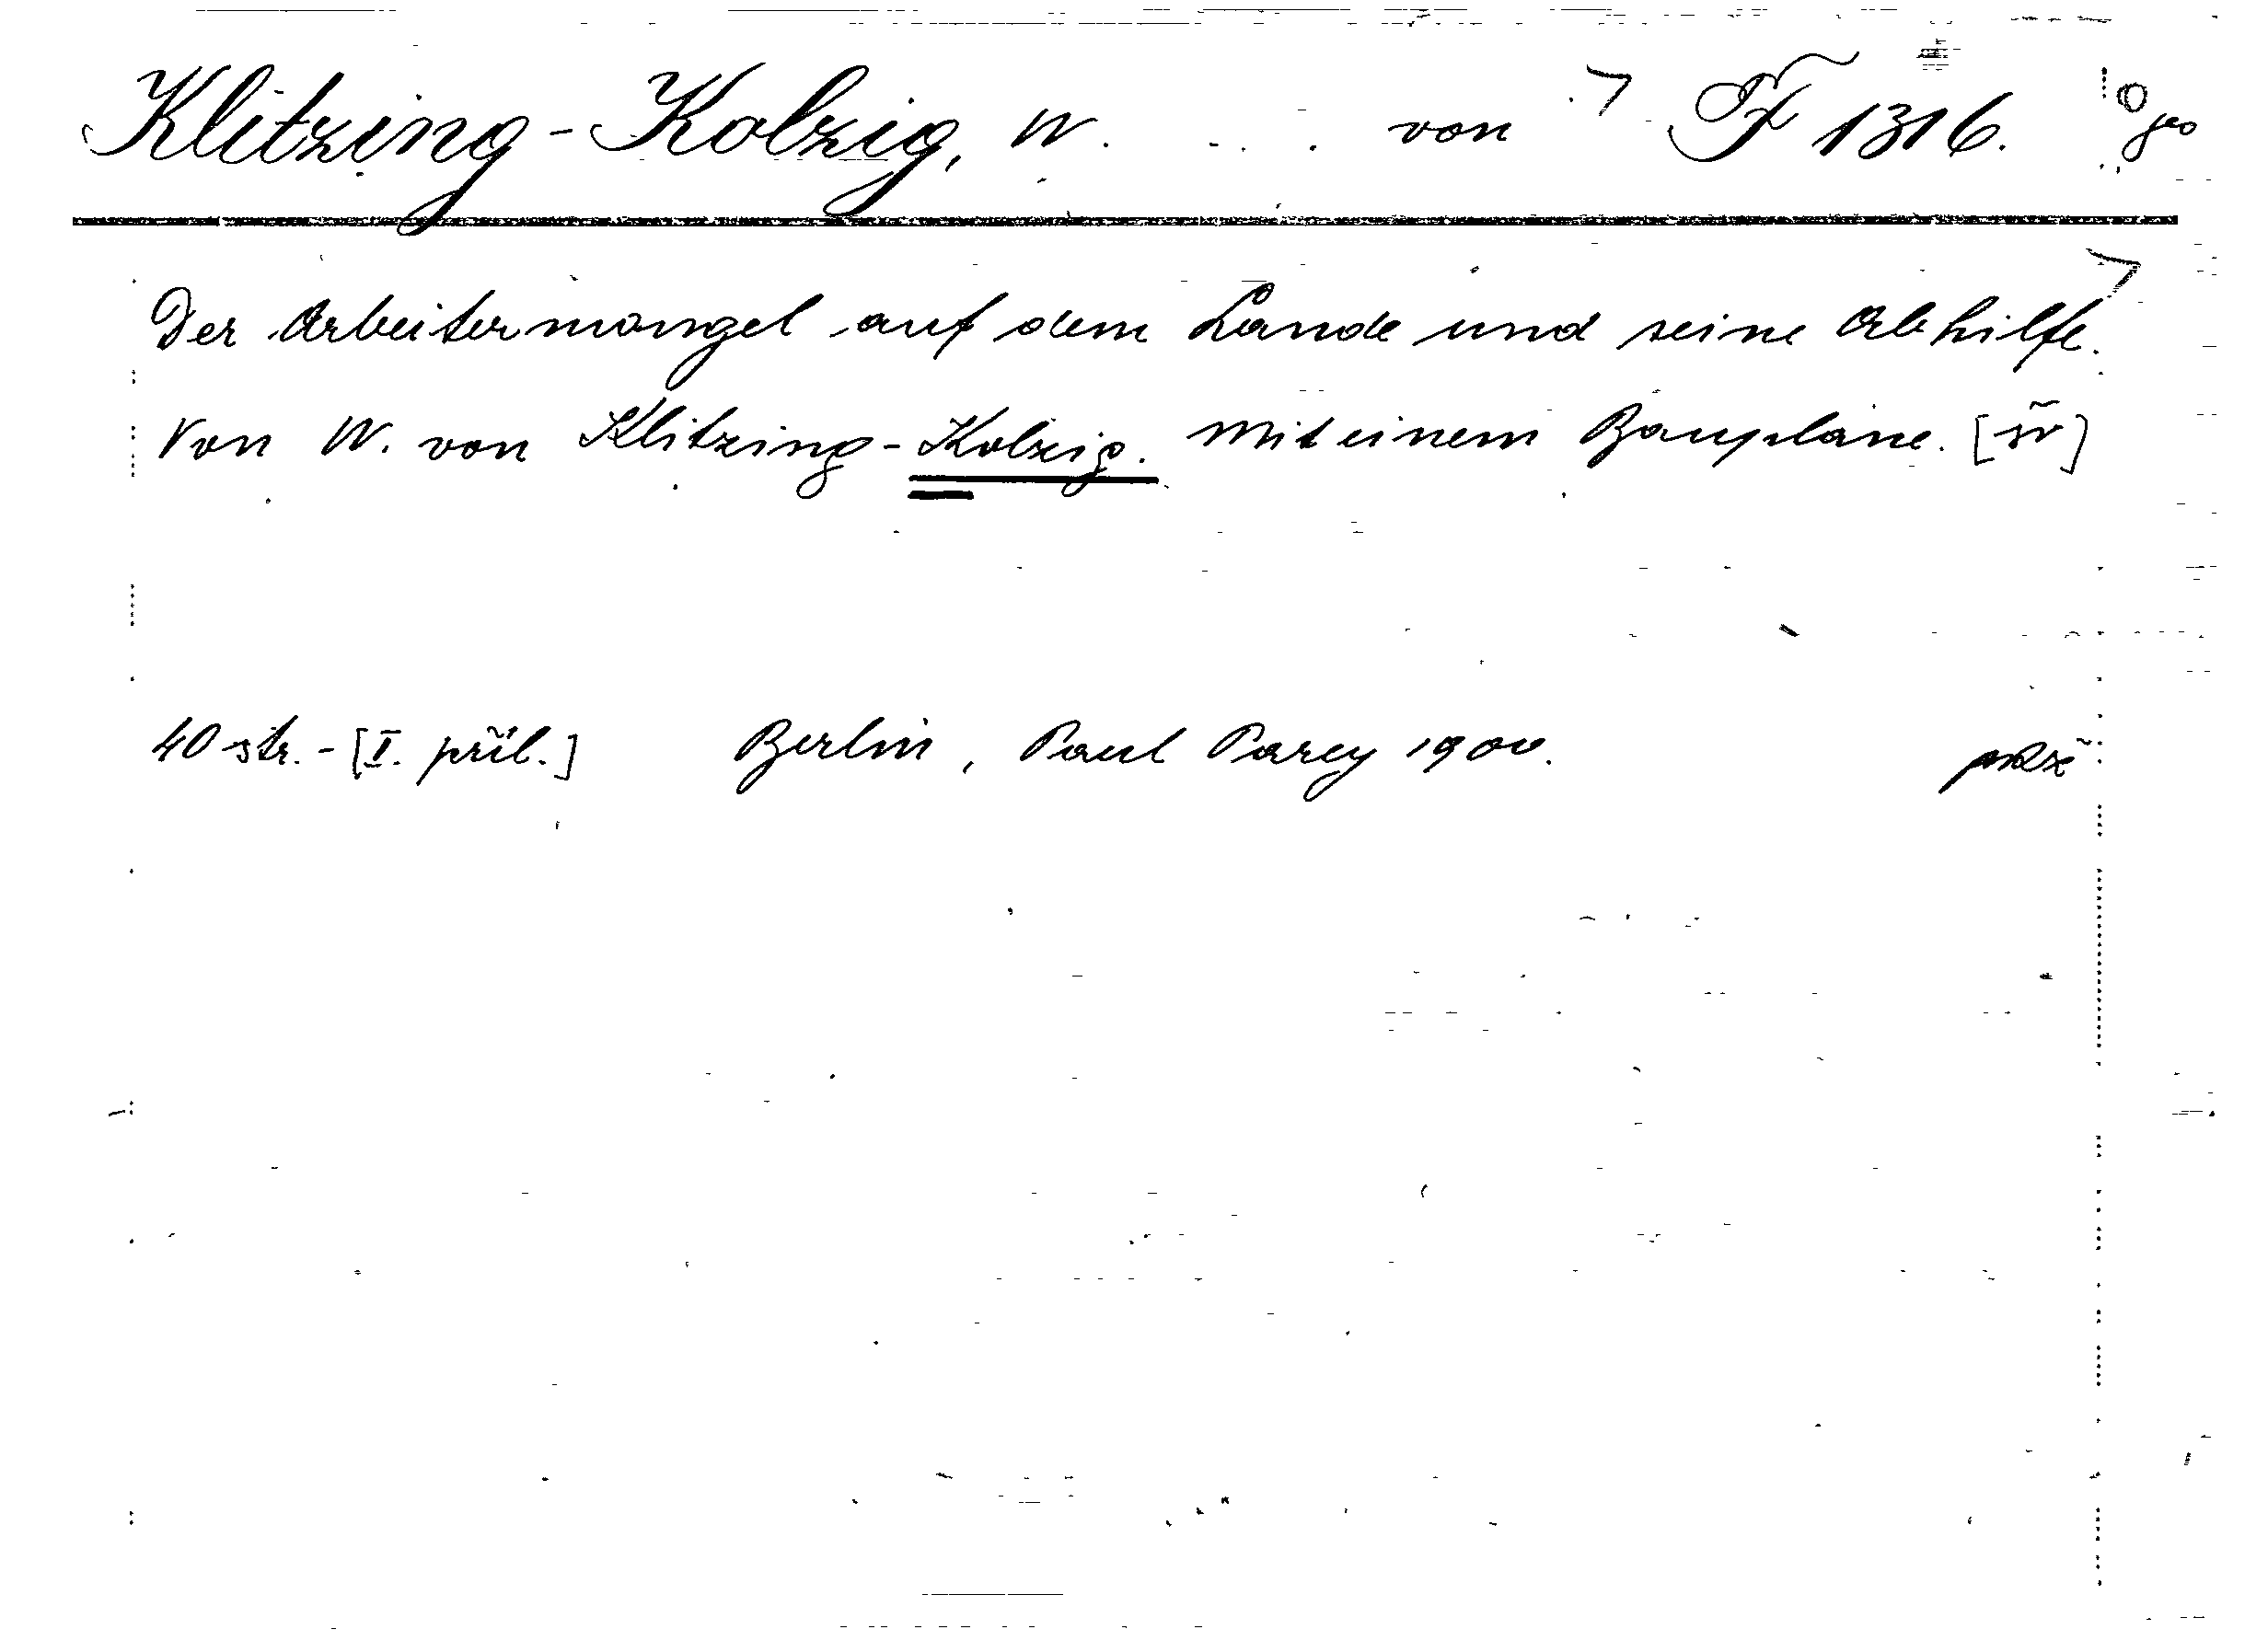 Klitzing-Kolzig, W. . . . von F 1316.
Der Arbeitermangel auf dem Lande und seine Abhilfe.
Von W. von Klitzing-Kolzig. Mit einem Bauplane. [sv]
40 str. - [I. příl.] Berlin, Paul Parey 1900.